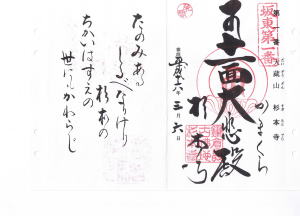 坂東第一番
第一番 大蔵山 杉本寺
奉拝
平成十六年三月六日
十一面大悲殿
かまくら
杉本寺
たのみある
しるべなりけり
杉本の
ちかいはすえの
世にもかわらじ